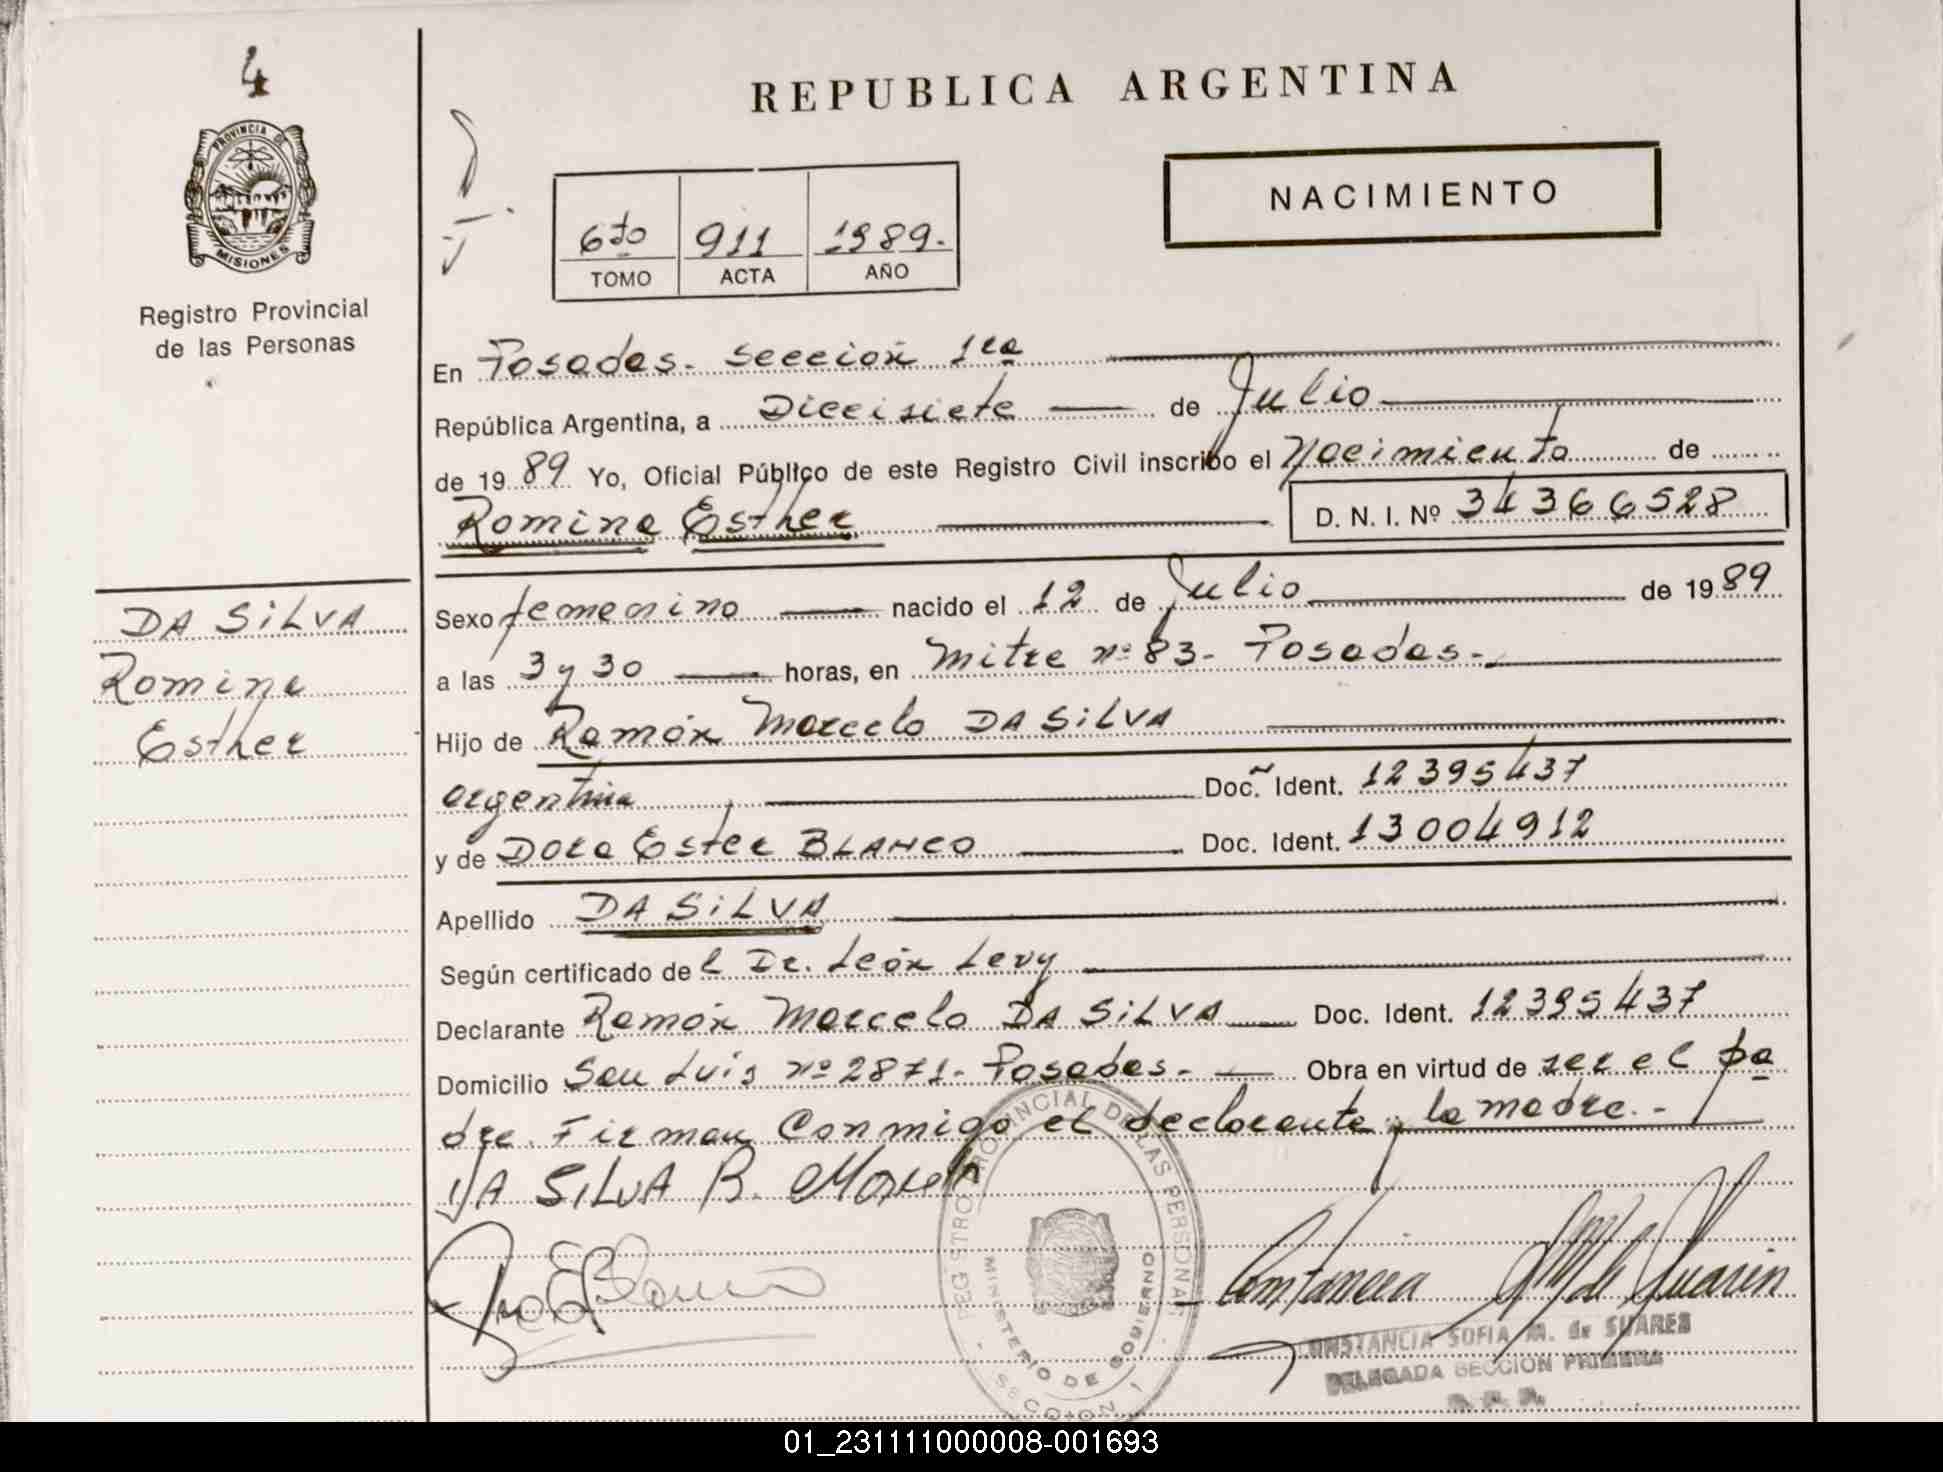 4
PROVINCIA DE
MISIONES
Registro Provincial
de las Personas
DA SILVA
Romina
Esther
REPUBLICA ARGENTINA
NACIMIENTO
6to 911 1989.
TOMO ACTA AÑO
En Posadas. Sección 1ra
República Argentina, a Diecisiete de Julio
de 1989 Yo, Oficial Público de este Registro Civil inscribo el Nacimiento de
Romina Esther D. N. I. Nº 34366528
Sexo femenino nacido el 12 de Julio de 1989
a las 3 y 30 horas, en Mitre nº 83- Posadas-
Hijo de Ramón Marcelo DA SILVA
argentina Doc. Ident. 12395437
y de Dora Ester BLANCO Doc. Ident. 13004912
Apellido DA SILVA
Según certificado del Dr. León Levy
Declarante Ramón Marcelo DA SILVA Doc. Ident. 12395437
Domicilio San Luis nº 2871- Posadas- Obra en virtud de ser el pa
dre. Firman conmigo el declarante y la madre.-
DA SILVA R. Marcelo
REGISTRO PROVINCIAL DE LAS PERSONAS
MINISTERIO DE GOBIERNO
SECCION 1
Constancia M. de Suarez
CONSTANCIA SOFIA M. de SUAREZ
DELEGADA SECCION PRIMERA
01_231111000008-001693